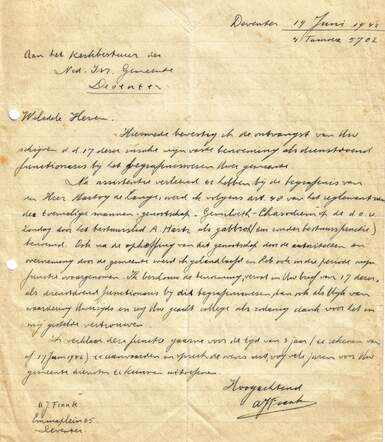 Deventer 19 Juni 1942
4 Tamoez 5702
Aan het Kerkbestuur der
Ned. Isr. Gemeente
Deventer
Weledele Heren,
Hiermede bevestig ik de ontvangst van Uw
schrijven d.d. 17 dezer inzake mijn vaste benoeming als dienstdoend
functionaris bij het begrafeniswezen Uwer gemeente.
Na assistentie verleend te hebben bij de begrafenis van
den Heer Hartog de Lange, werd ik volgens art. 40 van het reglement van
de Eenvoudige mannen genootschap Gemiloeth-Chasodiem op de d.o.v.
Zondag door het bestuurslid A. Marks als gabbe
benoemd. Ook na de opheffing van dit genootschap door de autoriteiten en
overneming door de gemeente werd ik gehandhaafd en heb ook in die periode mijn
functie waargenomen. Ik beschouw de benoeming, vervat in Uw brief van 17 dezer,
als dienstdoend functionaris bij dit begrafeniswezen, dan ook als blijk van
waardering Uwerzijds en zeg Uw geacht college dank voor het in
mij gestelde vertrouwen.
Ik verklaar deze functie gaarne voor de tijd van 3 jaar (te rekenen van
af 17 Juni 1942) te aanvaarden en spreek de wens uit, vele jaren voor Uw
gemeente diensten te kunnen uitoefenen.
Hoogachtend
AJFrank
A J. Frank
Emmaplein 25
Deventer